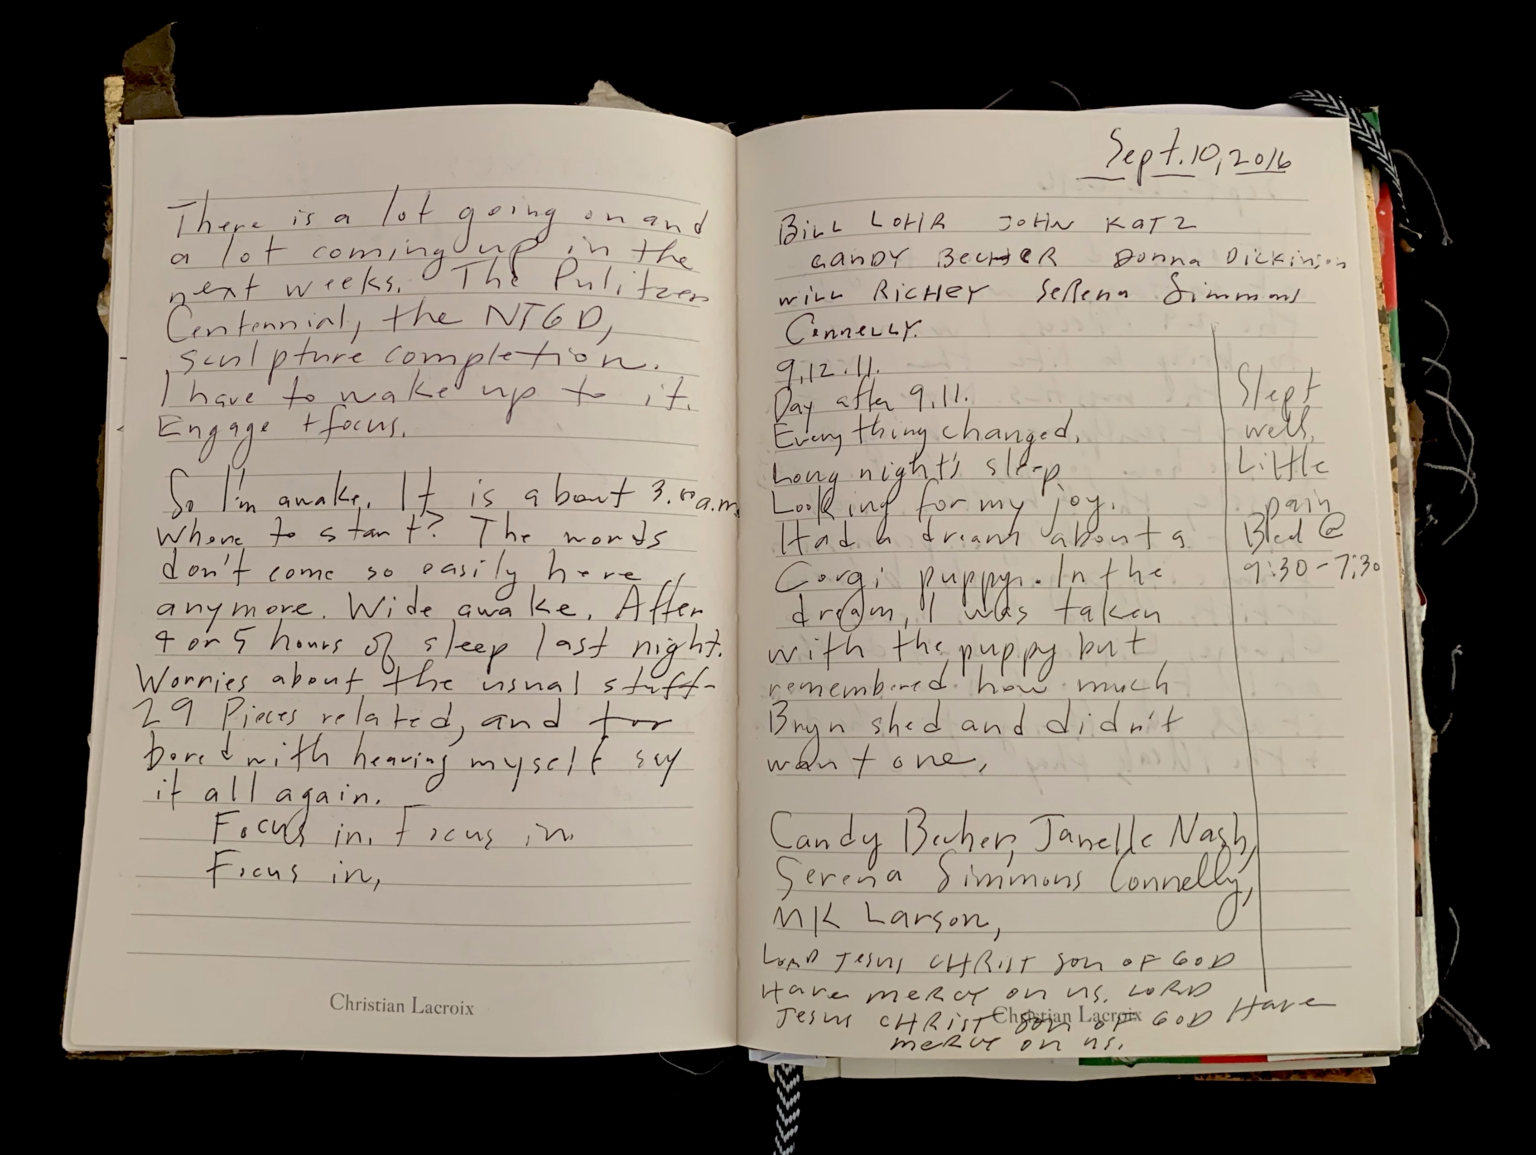 There is a lot going on and
a lot coming up in the
next weeks. The Pulitzer
Centennial, the NTGD,
sculpture completion.
I have to wake up to it.
Engage + focus.
So I'm awake. It is about 3:00 a.m.
Where to start? The words
don't come so easily here
anymore. Wide awake. After
4 or 5 hours of sleep last night.
Worries about the usual stuff-
29 Pieces related, and for
bored with hearing myself say
it all again.
Focus in. Focus in.
Focus in,
Christian Lacroix
Sept. 10, 2016
BILL LOHR JOHN KATZ
CANDY BECHER Donna Dickinson
WILL RICHEY Serena Simmons
Connelly.
9.12.11.
Day after 9.11.
Everything changed.
Long night's sleep
Looking for my joy.
Had a dream about a
Corgi puppy. In the
dream, I was taken
with the puppy but
remembered how much
Bryn shed and didn't
want one.
Slept
well.
Little
pain
Bed @
9:30-7:30
Candy Becher, Janelle Nash,
Serena Simmons Connelly,
MK Larson,
LORD JESUS CHRIST SON OF GOD
HAVE MERCY ON US. LORD
JESUS CHRIST SON OF GOD HAVE
MERCY ON US.
Christian Lacroix